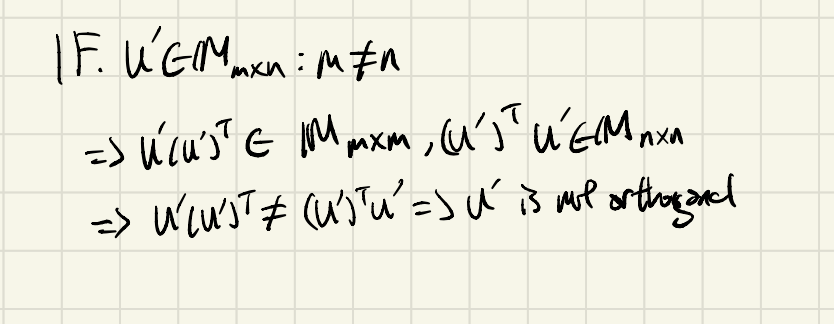 IF. U'∈M_{m×n} : m≠n
=> U'(U')^T ∈ M_{m×m}, (U')^T U'∈M_{n×n}
=> U'(U')^T ≠ (U')^T U' => U' is not orthogonal